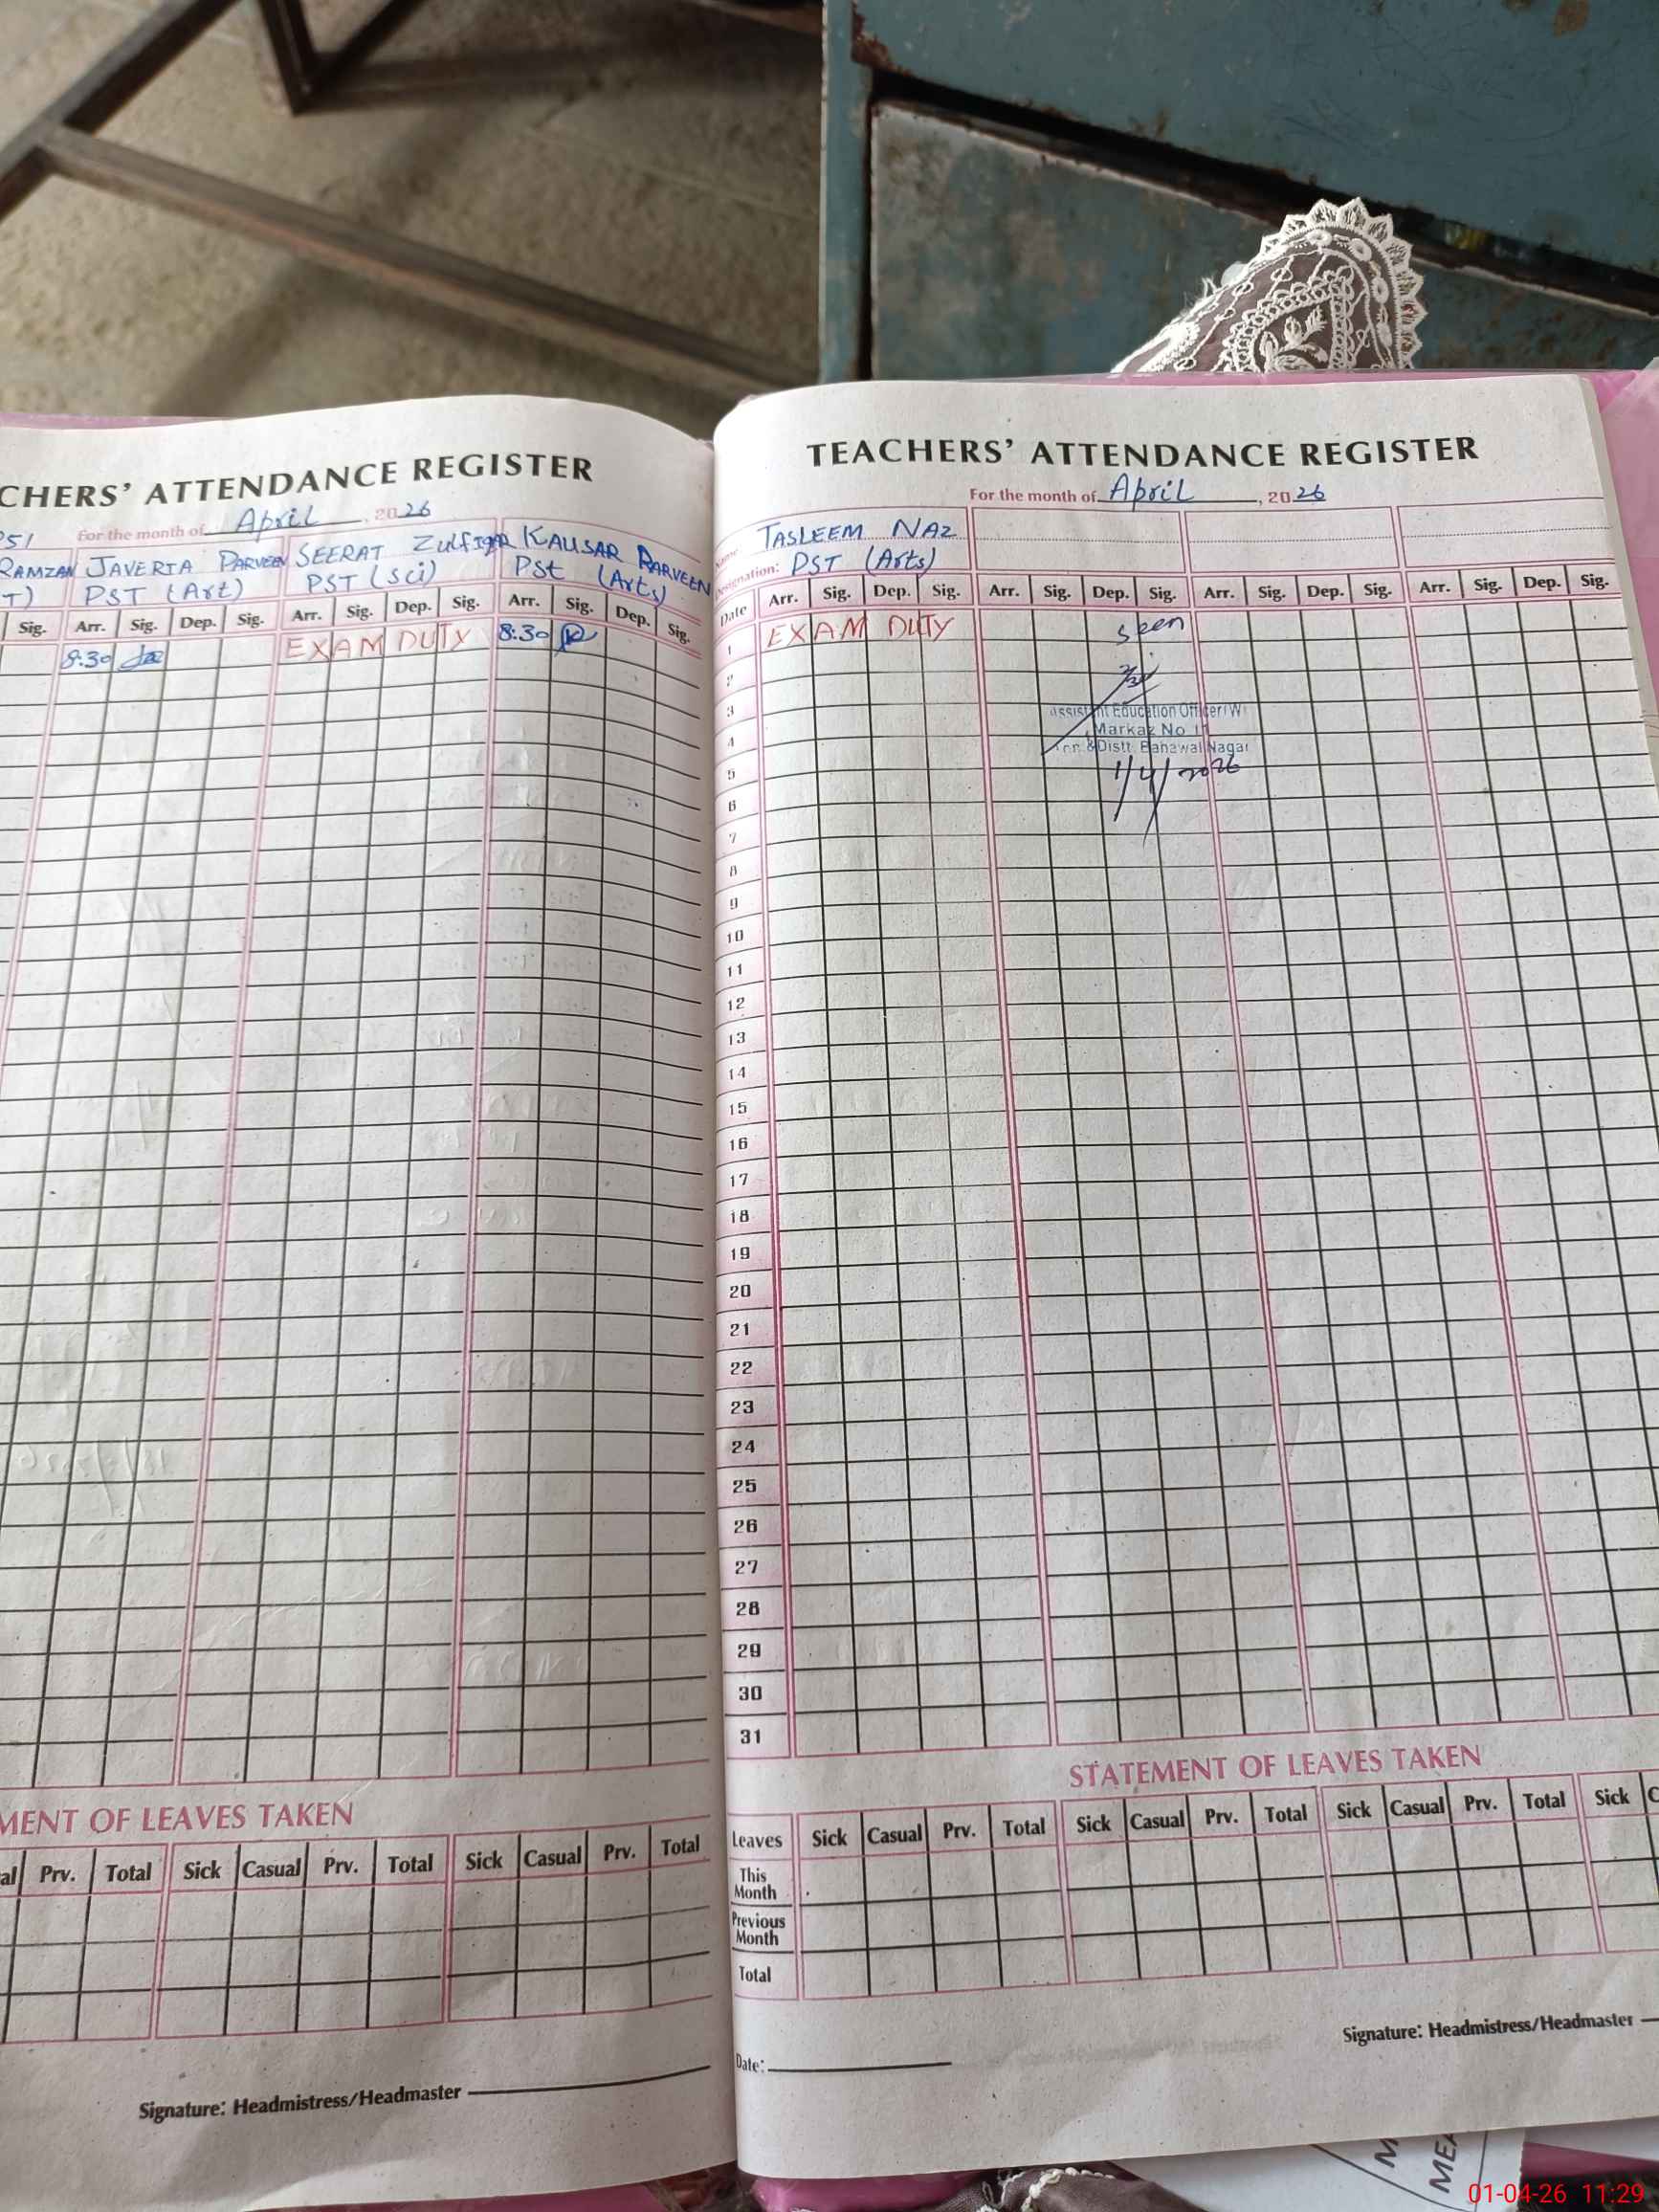 CHERS' ATTENDANCE REGISTER
For the month of April, 2026
RAMZAN JAVERIA PARVEEN SEERAT ZULFIQAR KAUSAR PARVEEN
T) PST (Art) PST (Sci) PSt (Arts)
Sig. Arr. Sig. Dep. Sig. Arr. Sig. Dep. Sig. Arr. Sig. Dep. Sig.
8:30 EXAM DUTY 8:30
MENT OF LEAVES TAKEN
al Prv. Total Sick Casual Prv. Total Sick Casual Prv. Total
Signature: Headmistress/Headmaster
TEACHERS' ATTENDANCE REGISTER
For the month of April, 2026
Name TASLEEM NAZ
Designation: PST (Arts)
Date Arr. Sig. Dep. Sig. Arr. Sig. Dep. Sig. Arr. Sig. Dep. Sig. Arr. Sig. Dep. Sig.
1 EXAM DUTY seen
2
3
Assistant Education Officer (W)
Markaz No 11
4
&Distt. Bahawal Nagar
5
1/4/2026
6
7
8
9
10
11
12
13
14
15
16
17
18
19
20
21
22
23
24
25
26
27
28
29
30
31
STATEMENT OF LEAVES TAKEN
Leaves Sick Casual Prv. Total Sick Casual Prv. Total Sick Casual Prv. Total Sick C
This
Month
Previous
Month
Total
Signature: Headmistress/Headmaster
Date:
01-04-26 11:29